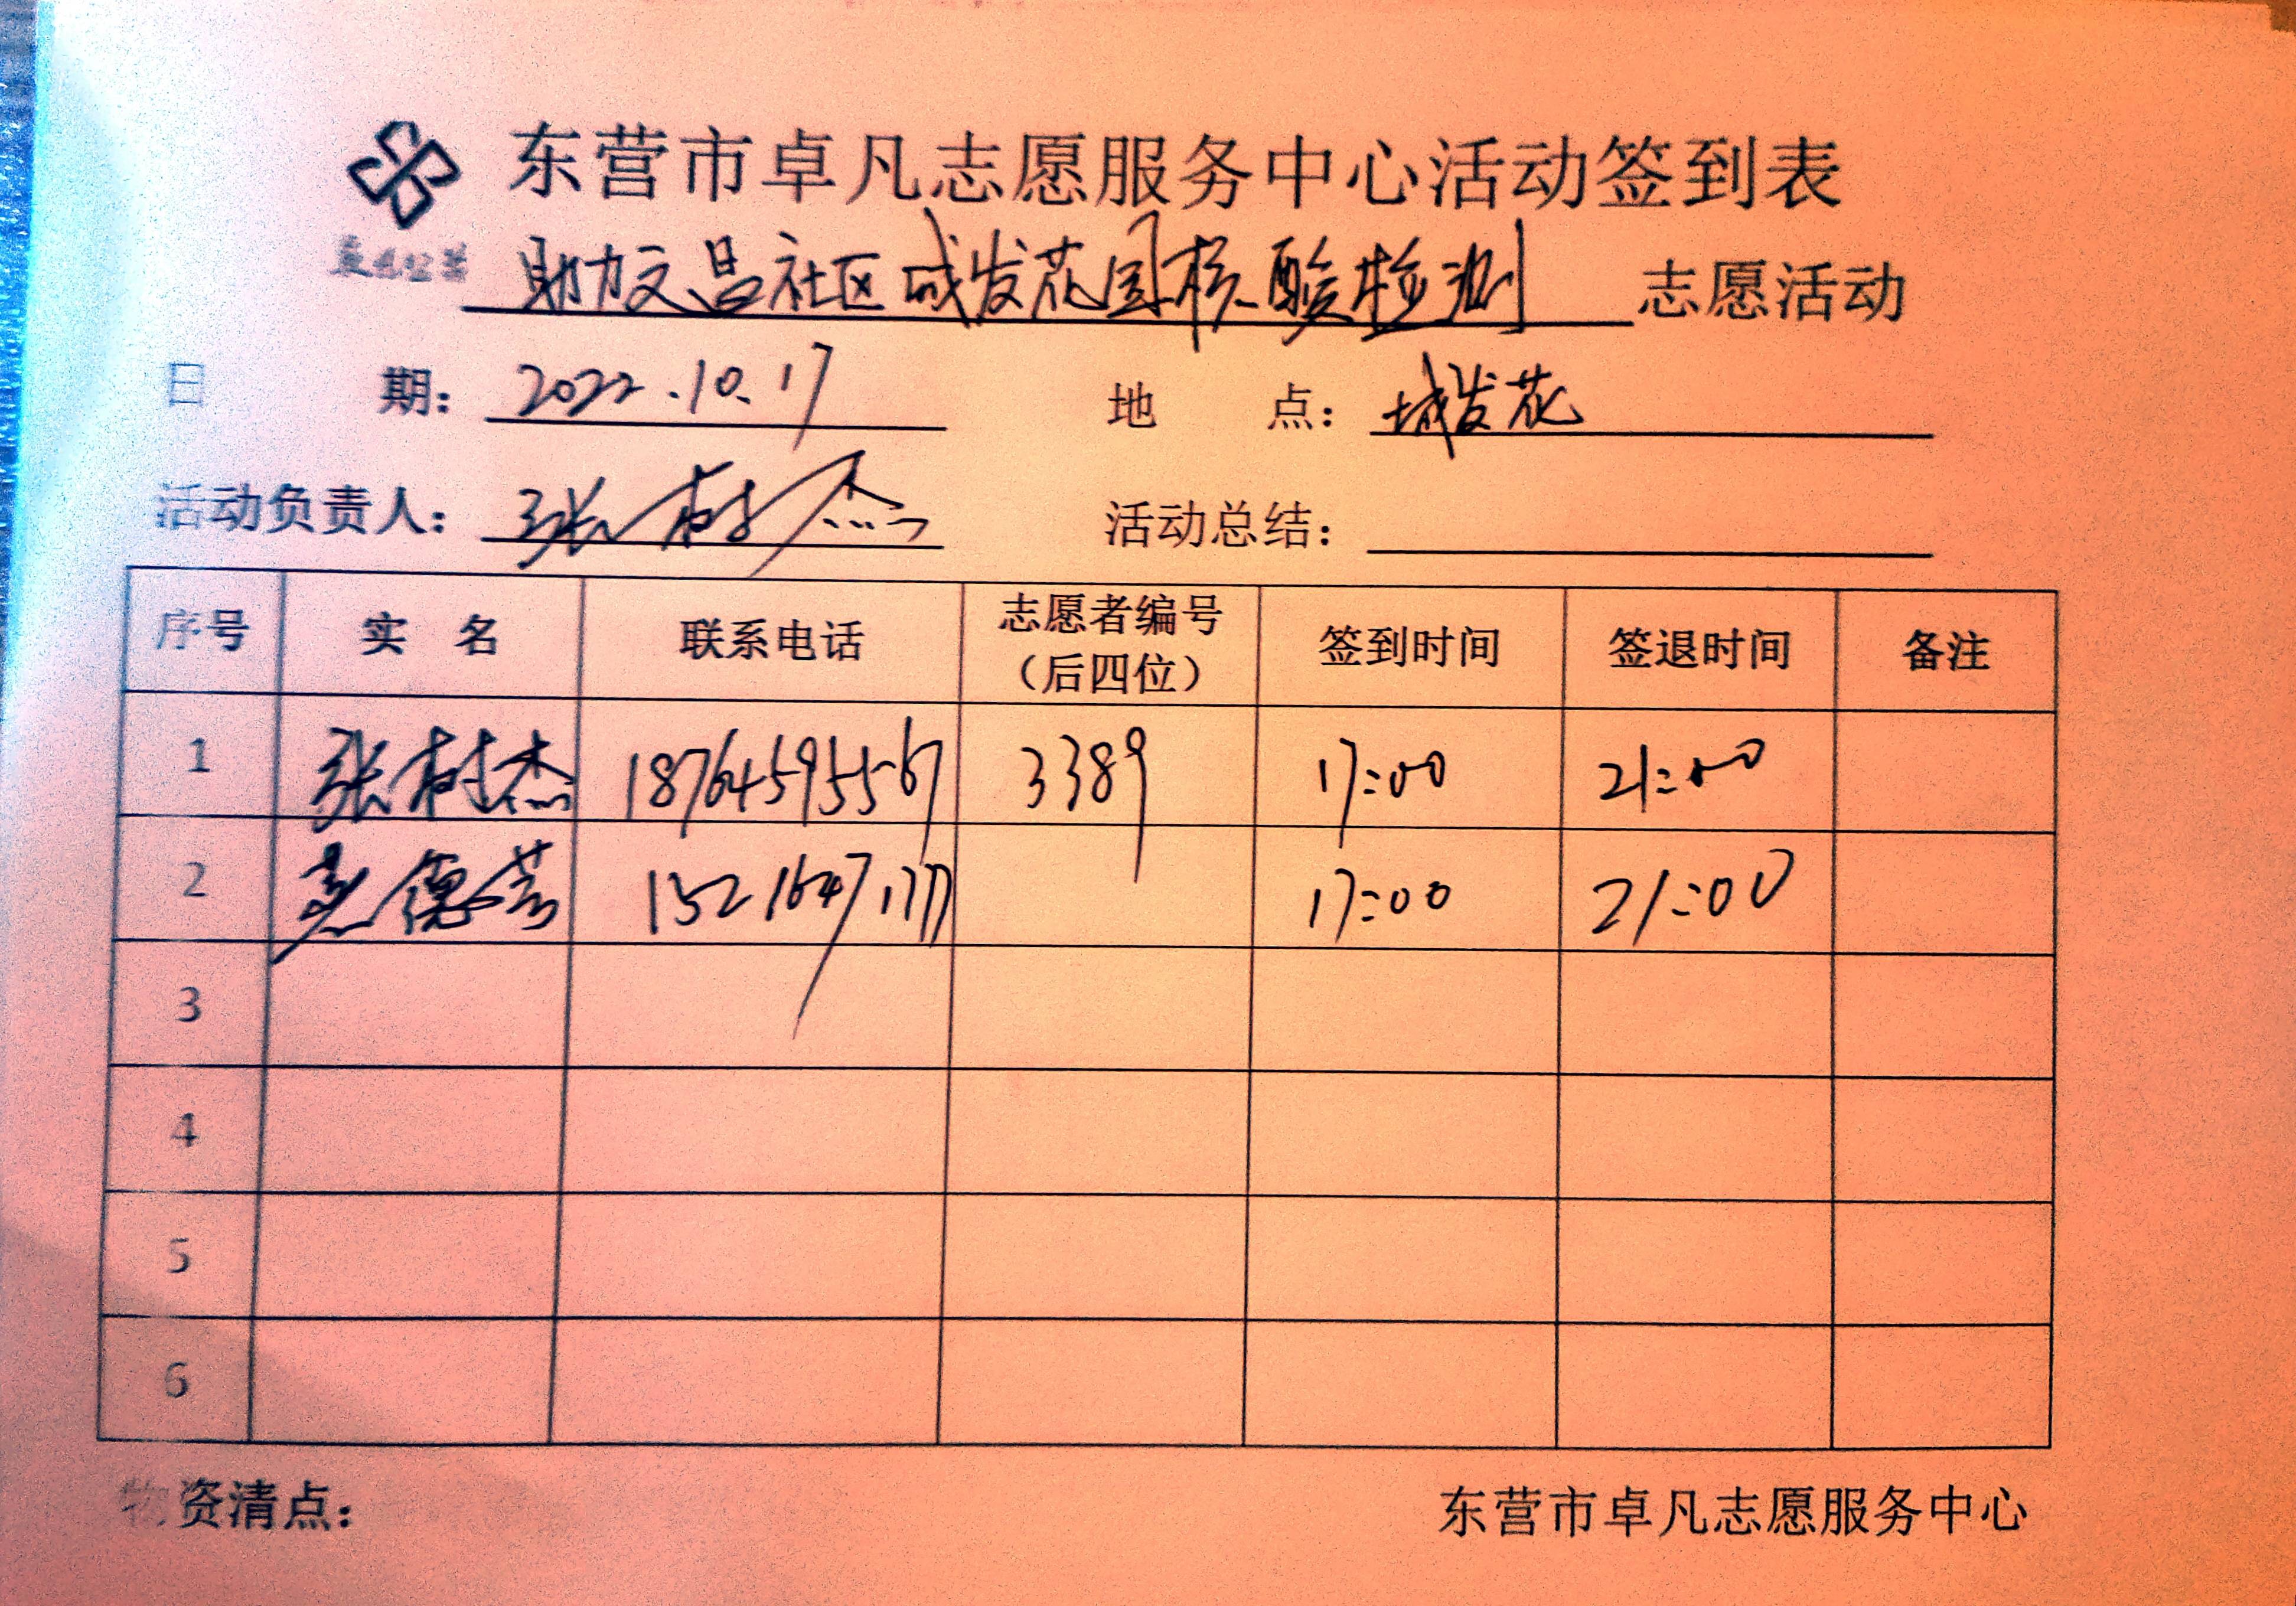 东营市卓凡志愿服务中心活动签到表
助力文昌社区城发花园核酸检测 志愿活动
日 期： 2022.10.17 地 点： 城发花
活动负责人： 张树杰 活动总结：
序号 实 名 联系电话 志愿者编号（后四位） 签到时间 签退时间 备注
1 张树杰 18764595567 3389 17:00 21:00
2 17:00 21:00
3
4
5
6
物资清点： 东营市卓凡志愿服务中心